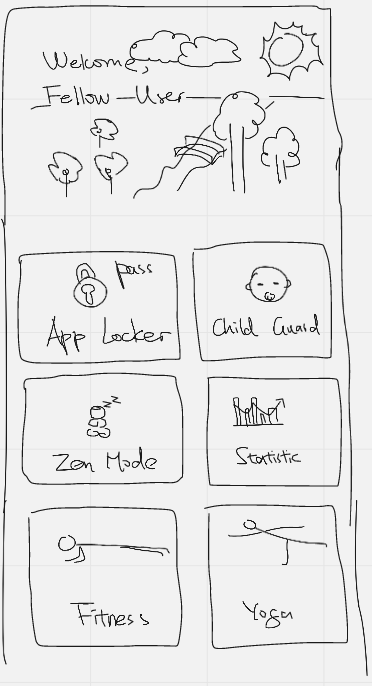 Welcome,
Fellow User
pass
App Locker
Child Guard
zzz
Zen Mode
Statistic
Fitness
Yoga